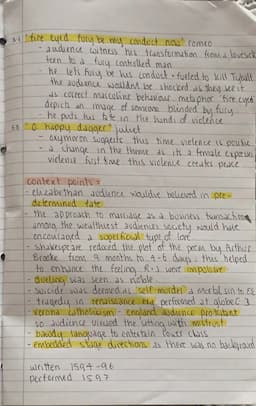 3.1 "fire eyed fury be my conduct now" romeo
- audience witness his transformation from a lovesick
teen to a fury controlled man
- he lets fury be his conduct - fuelled to kill Tybalt
the audience wouldnt be shocked as they see it
as correct masculine behaviour. metaphor 'fire eyed'
depicts an image of someone blinded by fury
he puts his fate in the hands of violence
"O happy dagger" juliet
- oxymoron suggests this time violence is positive
- a change in the theme as its a female exposing
violence first time this violence creates peace
context points:
- elizabethan audience wouldve believed in pre-
determined fate
- the approach to marriage as a business transaction
among the wealthiest audiences society would have
encouraged a superficial type of love
- shakespeare reduced the plot of the poem by Arthur
Brooke from 9 months to 4-6 days, this helped
to enhance the feeling R+J were impulsive
- duelling was seen as noble
- suicide was deemed as 'self murder' a mortal sin to
- tragedy in renaissance era performed at globe
- verona catholicism - england audience protestant
so audience viewed the with mistrust
- bawdy language to entertain lower class
- embedded stage directions as there was no background
written 1594-96
performed 1597